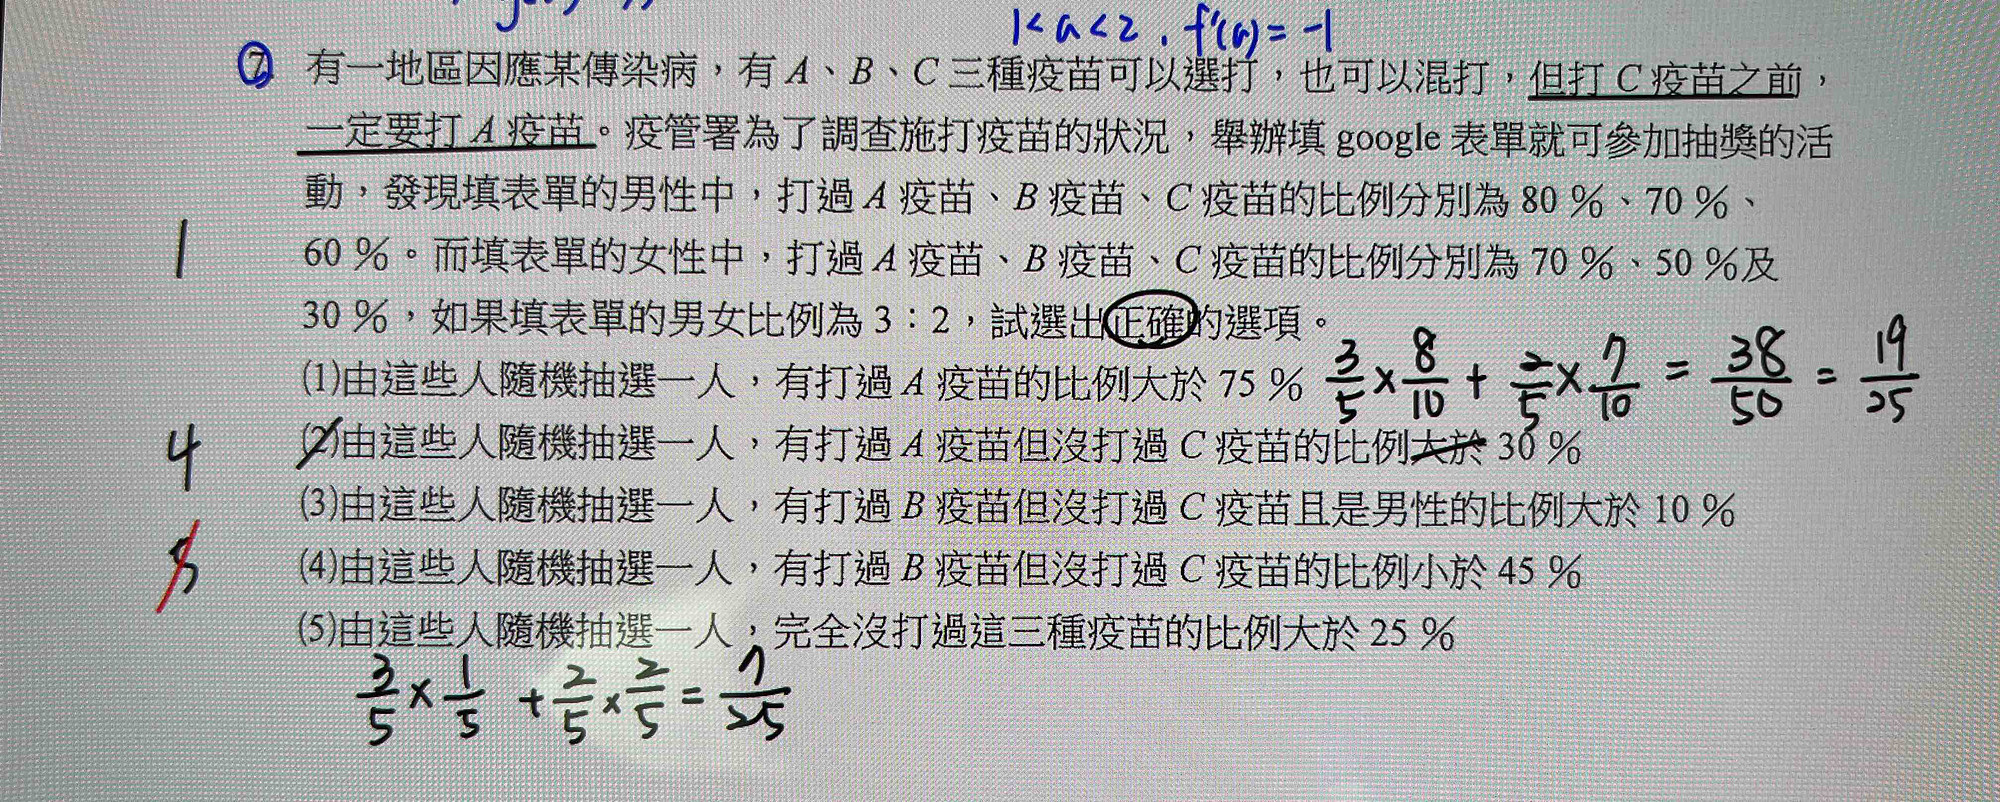 1<a<2 , f'(a)=-1
7. 有一地區因應某傳染病，有 A、B、C 三種疫苗可以選打，也可以混打，但打 C 疫苗之前，
一定要打 A 疫苗。疫管署為了調查施打疫苗的狀況，舉辦填 google 表單就可參加抽獎的活
動，發現填表單的男性中，打過 A 疫苗、B 疫苗、C 疫苗的比例分別為 80 %、70 %、
60 %。而填表單的女性中，打過 A 疫苗、B 疫苗、C 疫苗的比例分別為 70 %、50 %及
1
30 %，如果填表單的男女比例為 3：2，試選出正確的選項。
(1)由這些人隨機抽選一人，有打過 A 疫苗的比例大於 75 % 3/5×8/10+2/5×7/10=38/50=19/25
(2)由這些人隨機抽選一人，有打過 A 疫苗但沒打過 C 疫苗的比例大於 30 %
4
(3)由這些人隨機抽選一人，有打過 B 疫苗但沒打過 C 疫苗且是男性的比例大於 10 %
(4)由這些人隨機抽選一人，有打過 B 疫苗但沒打過 C 疫苗的比例小於 45 %
5
(5)由這些人隨機抽選一人，完全沒打過這三種疫苗的比例大於 25 %
3/5×1/5+2/5×2/5=7/25